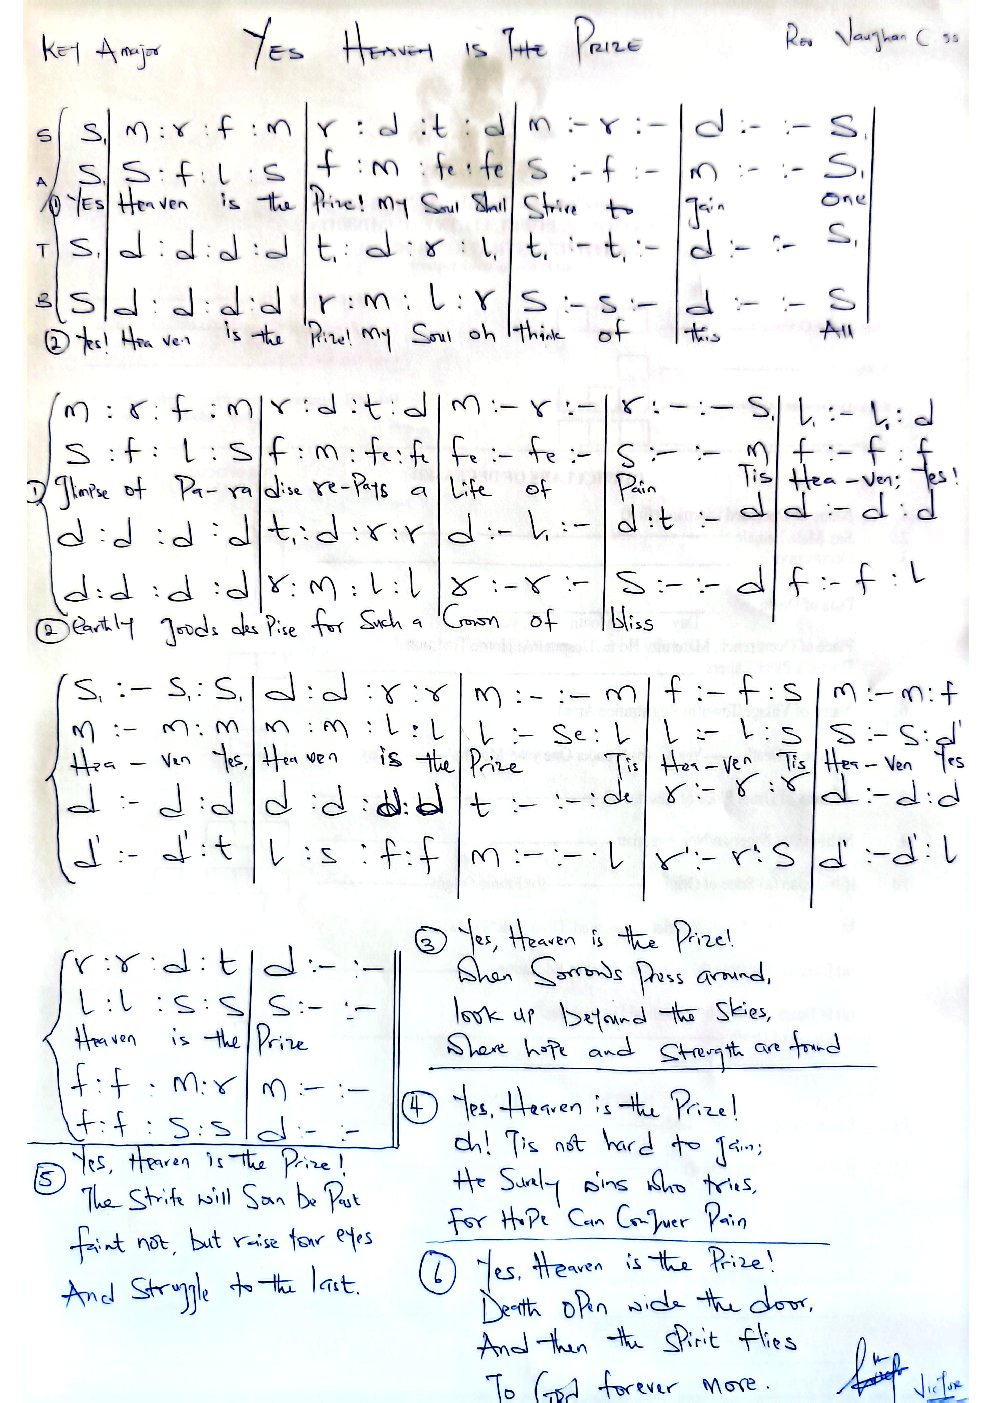 Key A major YES HEAVEN IS THE PRIZE Rev Vaughan C ss
S S₁ | m : r : f : m | r : d : t : d | m :- r :- | d :- :- S₁
A S₁ | S : f : l : s | f : m : fe : fe | S :- f :- | m :- :- S₁
① YES Heaven is the Prize! My Soul Shall Strive to gain one
T S₁ | d : d : d : d | t₁ : d : r : l₁ | t₁ :- t₁ :- | d :- :- S₁
B S | d : d : d : d | r : m : l : r | S :- S :- | d :- :- S
② Yes! Hea ven is the Prize! My Soul oh think of this All
m : r : f : m | r : d : t : d | m :- r :- | r :- :- S₁ | l₁ :- l₁ : d
S : f : l : S | f : m : fe : fe | fe :- fe :- | S :- :- m | f :- f : f
① Glimpse of Pa-ra dise re-Pays a Life of Pain Tis Hea-ven; Yes!
d : d : d : d | t₁ : d : r : r | d :- l₁ :- | d : t :- d | d :- d : d
d : d : d : d | r : m : l : l | r :- r :- | S :- :- d | f :- f : l
② earthly goods des Pise for Such a Crown of bliss
S₁ :- S₁ : S₁ | d : d : r : r | m :- :- m | f :- f : S | m :- m : f
m :- m : m | m : m : l : l | l :- Se : l | l :- l : S | S :- S : d'
Hea - ven Yes, Hea ven is the Prize Tis Hea-ven Tis Hea-ven Yes
d :- d : d | d : d : d : d | t :- :- : de | r :- r : r | d :- d : d
d' :- d' : t | l : s : f : f | m :- :- l | r' :- r : S | d' :- d' : l
r : r : d : t | d :- :-
l : l : S : S | S :- :-
Heaven is the Prize
f : f : m : r | m :- :-
f : f : S : S | d :- :-
③ Yes, Heaven is the Prize!
When Sorrows Press around,
look up beyound the Skies,
Where hope and Strength are found
④ Yes, Heaven is the Prize!
oh! Tis not hard to gain;
He Surely wins who tries,
for HoPe Can Conquer Pain
⑤ Yes, Heaven is the Prize!
The Strife will Soon be Past
faint not, but raise your eyes
And Struggle to the last.
⑥ Yes, Heaven is the Prize!
Death oPen wide the door,
And then the sPirit flies
To God forever more.
Victor